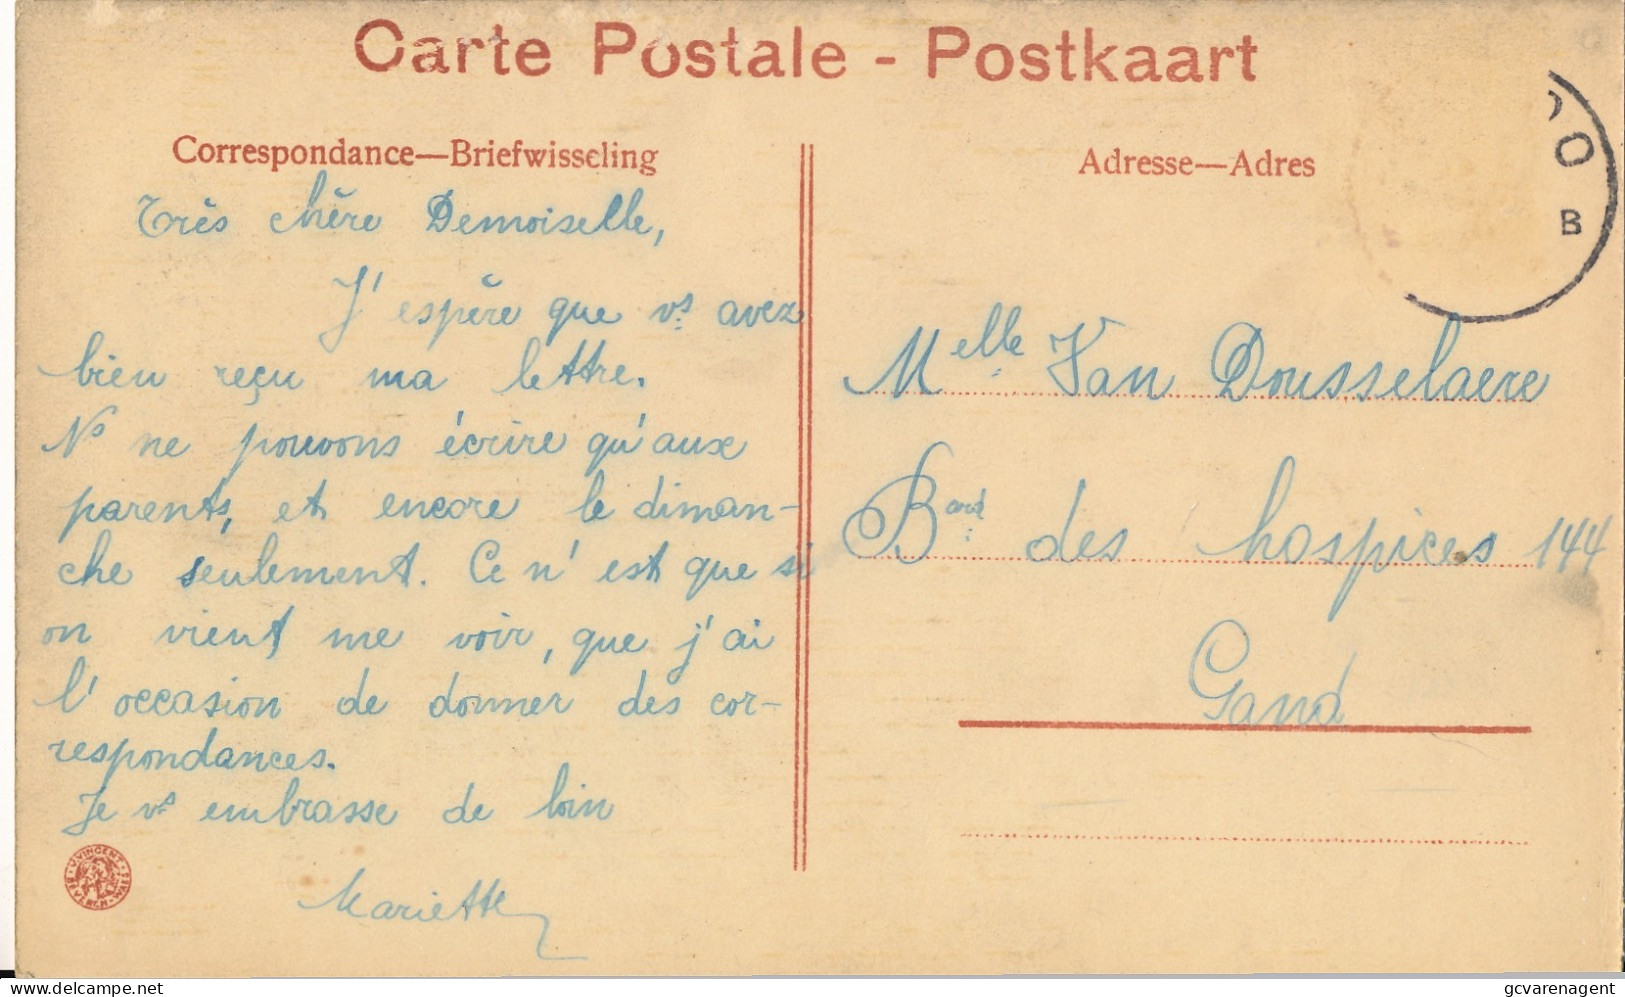 Carte Postale - Postkaart
Correspondance—Briefwisseling
Très chère Demoiselle,
J'espère que vs avez
bien reçu ma lettre.
Ns ne pouvons écrire qu'aux
parents, et encore le diman-
che seulement. Ce n'est que si
on vient me voir, que j'ai
l'occasion de donner des cor-
respondances.
Je vs embrasse de loin
Mariette
V. VINCENT
BEVEREN-WAES
Adresse—Adres
O
B
Melle Van Dousselaere
Bard des hospices 144
Gand
delcampe.net
gcvarenagent